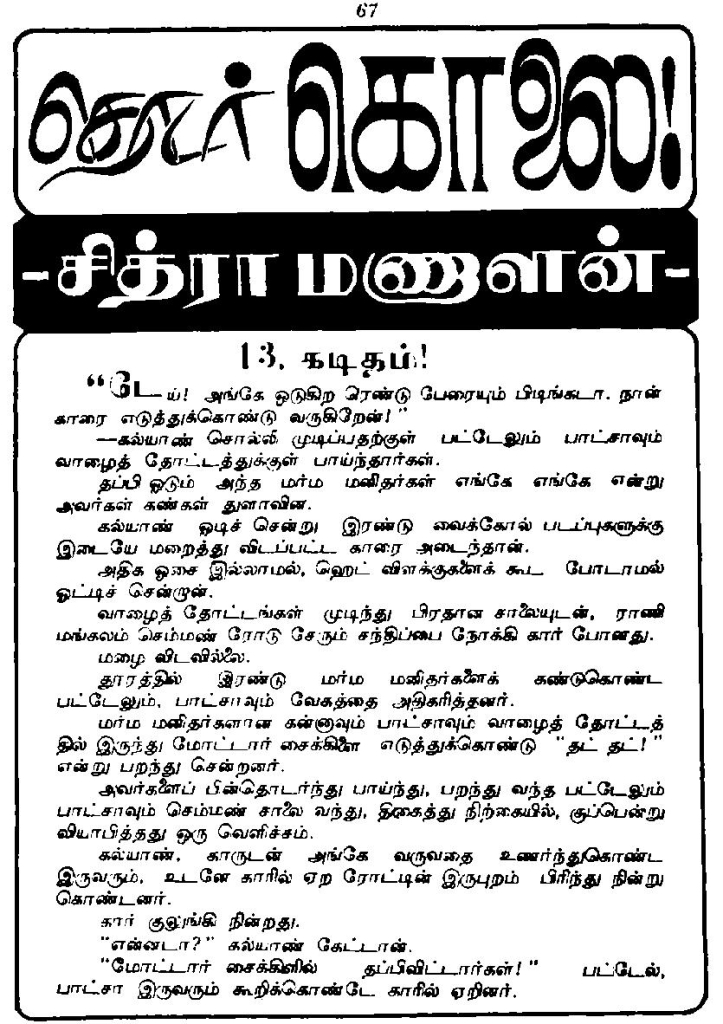 67
தொடர் கொலை!
-சித்ரா மணாளன்-
13. கடிதம்!
"டேய்! அங்கே ஓடுகிற ரெண்டு பேரையும் பிடிங்கடா. நான்
காரை எடுத்துக்கொண்டு வருகிறேன்!"
—கல்யாண் சொல்லி முடிப்பதற்குள் பட்டேலும் பாட்சாவும்
வாழைத் தோட்டத்துக்குள் பாய்ந்தார்கள்.
தப்பி ஓடும் அந்த மர்ம மனிதர்கள் எங்கே எங்கே என்று
அவர்கள் கண்கள் துளாவின.
கல்யாண் ஓடிச் சென்று இரண்டு வைக்கோல் படப்புகளுக்கு
இடையே மறைத்து விடப்பட்ட காரை அடைந்தான்.
அதிக ஓசை இல்லாமல், ஹெட் விளக்குகளைக் கூட போடாமல்
ஓட்டிச் சென்றான்.
வாழைத் தோட்டங்கள் முடிந்து பிரதான சாலையுடன், ராணி
மங்கலம் செம்மண் ரோடு சேரும் சந்திப்பை நோக்கி கார் போனது.
மழை விடவில்லை.
தூரத்தில் இரண்டு மர்ம மனிதர்களைக் கண்டுகொண்ட
பட்டேலும், பாட்சாவும் வேகத்தை அதிகரித்தனர்.
மர்ம மனிதர்களான கன்னாவும் பாட்சாவும் வாழைத் தோட்டத்
தில் இருந்து மோட்டார் சைக்கிளை எடுத்துக்கொண்டு "தட் தட்!"
என்று பறந்து சென்றனர்.
அவர்களைப் பின்தொடர்ந்து பாய்ந்து, பறந்து வந்த பட்டேலும்
பாட்சாவும் செம்மண் சாலை வந்து, திகைத்து நிற்கையில், குப்பென்று
வியாபித்தது ஒரு வெளிச்சம்.
கல்யாண், காருடன் அங்கே வருவதை உணர்ந்துகொண்ட
இருவரும், உடனே காரில் ஏற ரோட்டின் இருபுறம் பிரிந்து நின்று
கொண்டனர்.
கார் குலுங்கி நின்றது.
"என்னடா?" கல்யாண் கேட்டான்.
"மோட்டார் சைக்கிளில் தப்பிவிட்டார்கள்!" பட்டேல்,
பாட்சா இருவரும் கூறிக்கொண்டே காரில் ஏறினர்.